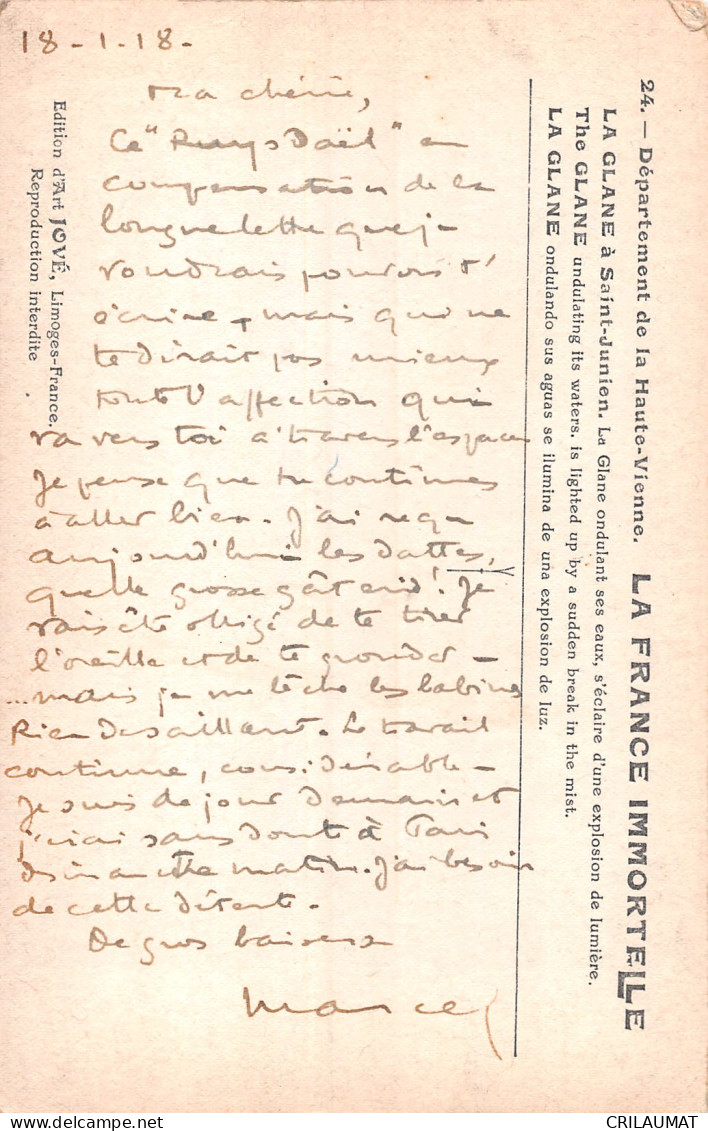 18-1-18-
Ma chérie,
Ce "Ruysdaël" en
compensation de la
longue lettre que je
voudrais pouvoir t'
écrire, mais qui ne
te dirait pas mieux
toute l'affection qui
va vers toi à travers l'espace
Je pense que tu continues
à aller bien. J'ai reçu
aujourd'hui les dattes,
quelle grosse gâterie! Je
vais être obligé de te tirer
l'oreille et de te gronder -
...mais je me lèche les babines
Rien de saillant. Le travail
continue, considérable -
Je suis de jour demain et
j'irai sans doute à Paris
dimanche matin. J'ai besoin
de cette détente.
De gros baisers
Marcel
24. — Département de la Haute-Vienne. LA FRANCE IMMORTELLE
LA GLANE à Saint-Junien. La Glane ondulant ses eaux, s'éclaire d'une explosion de lumière.
The GLANE undulating its waters. is lighted up by a sudden break in the mist.
LA GLANE ondulando sus aguas se ilumina de una explosion de luz.
Edition d'Art JOVÉ, Limoges-France.
Reproduction interdite
CRILAUMAT